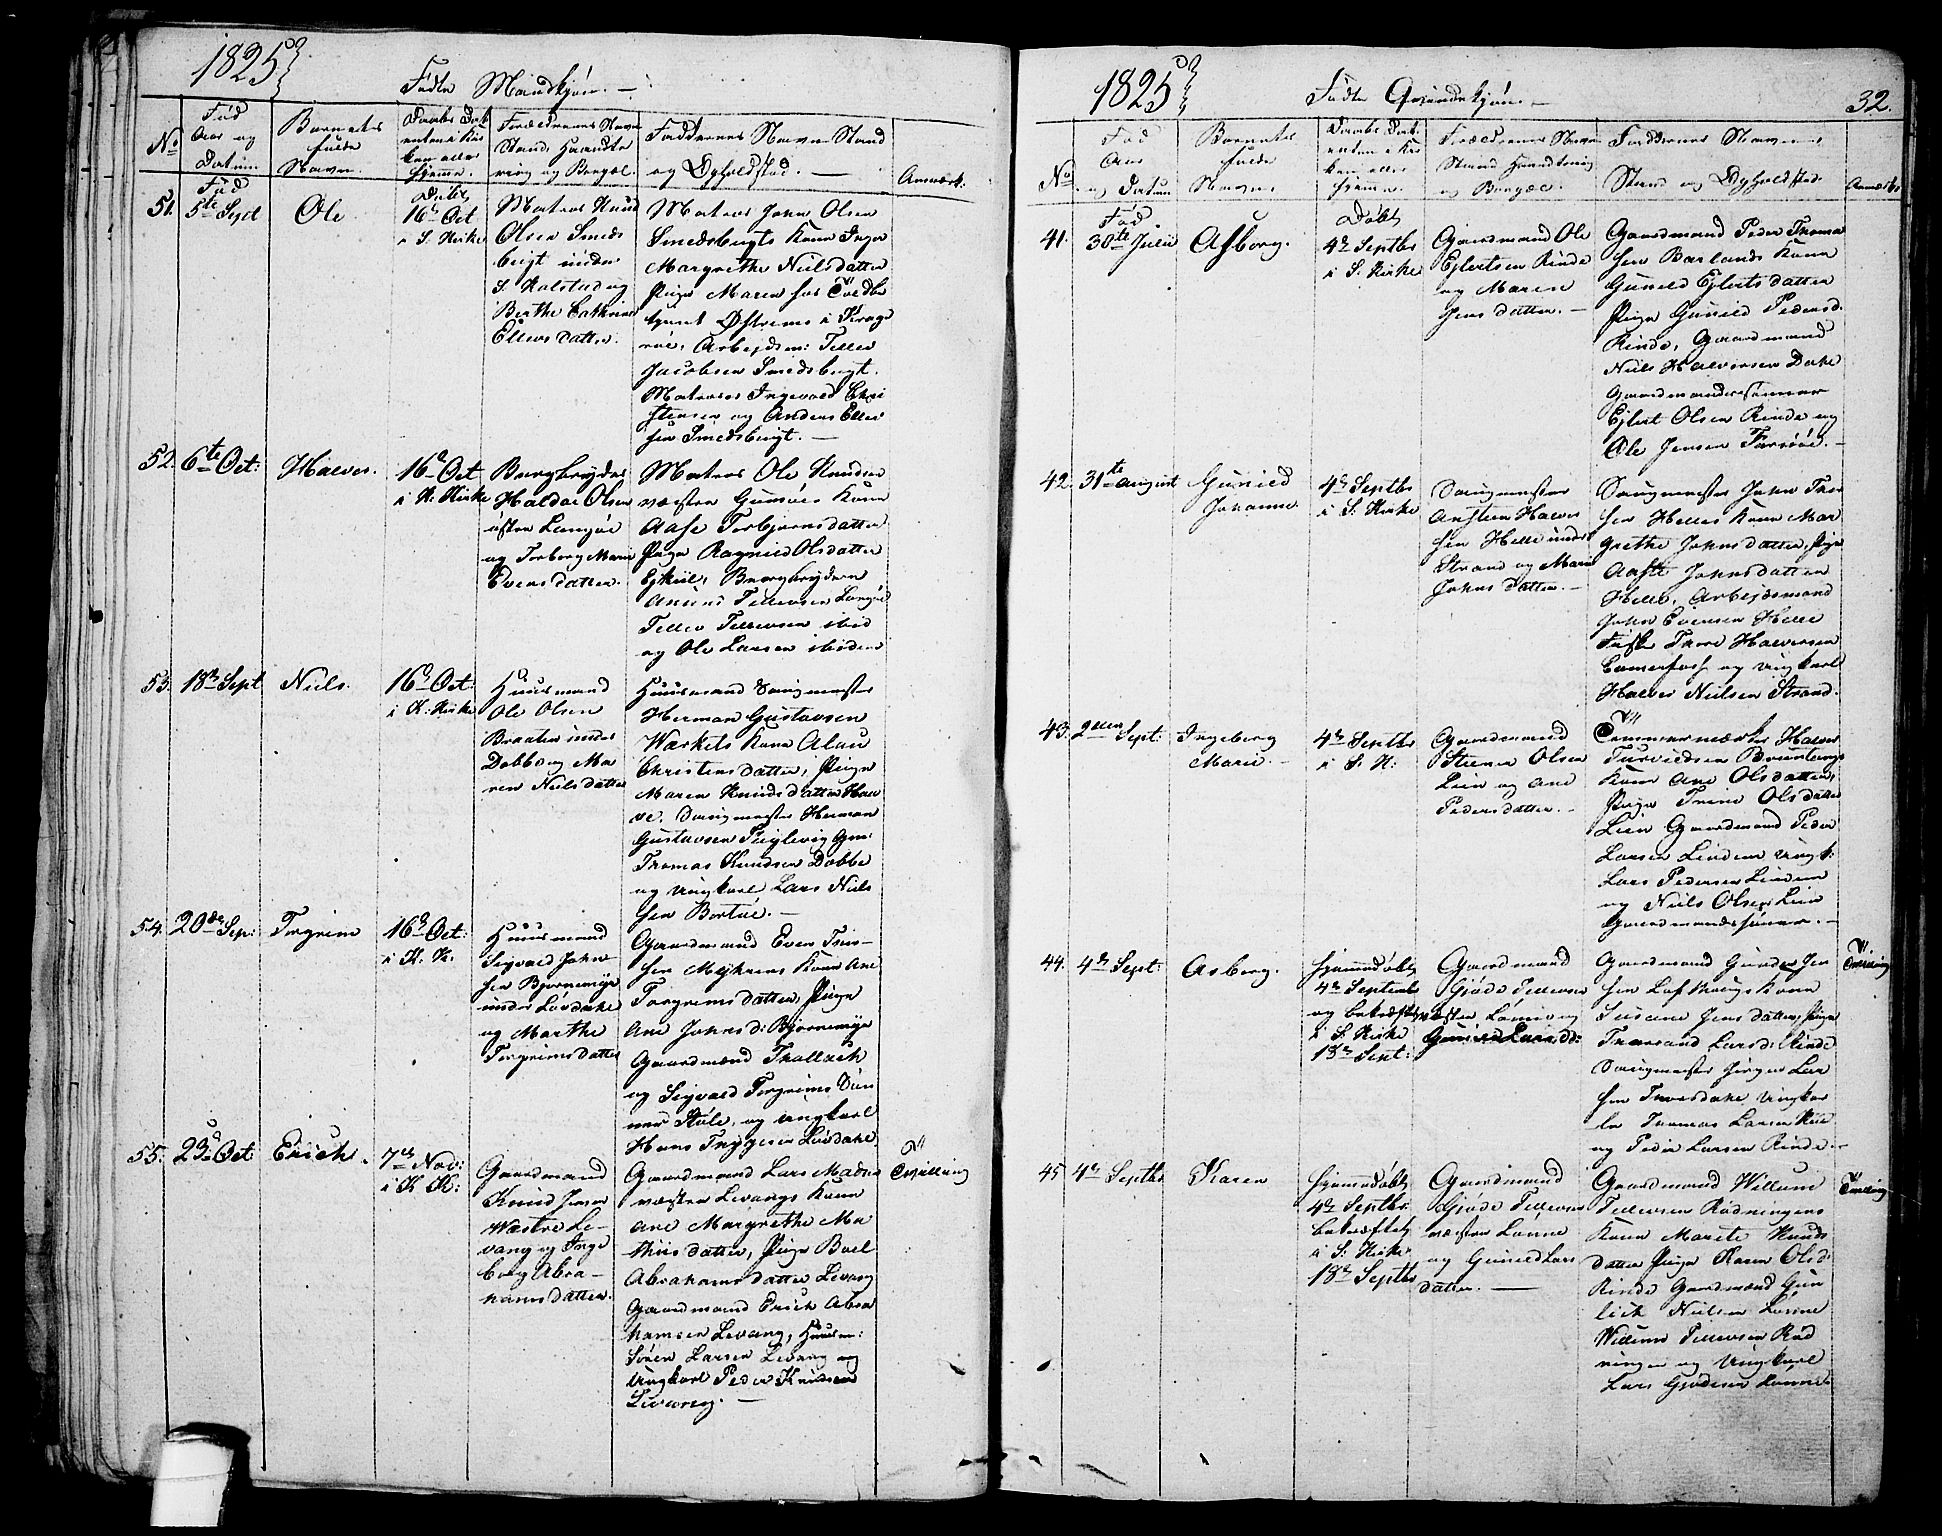 1825
Fødte Mandkjøn. —
No
Fød
Aar og
Datum.
Barnets
fulde
Navn.
Daabs Dat
enten i Kir
ken eller
hjemme.
Forældrenes Navn
Stand, Haandte
ring og Boepæl.
Faddernes Navn Stand
og Opholdsted. —
Anmærk:
51.
Fød
5te Sept
Ole
Døbt
16de Oct
i S. Kirke
Matros Knud
Olsen Smeds
bugt under
S. Kalstad og
Berthe Cathrine
Ellevsdatter.
Matros John Olsen
Smedsbugts Kone Inger
Margrethe Nielsdatter
Pige Maren hos Toldbe
tjent Østrems i Krage
røe, Arbeidsm: Tellev
Jacobsen Smedsbugt.
Matroser Ingevald Chri
stensen og Anders Ellev
sen Smedsbugt. —
52.
6te Oct:
Halvor.
16d Oct
i K. Kirke
Bergbryder
Haldor Olsen
østre Langøe
og Torborg Marie
Evensdatter.
Matros Ole Knudsen
væstre Gumøes Kone
Aase Torbjørnsdatter
Pige Ragnild Olsdatter
Bergbrydere
Tellevsen Langøe
Tellev Tellevsen ibid
og Ole Larsen ibidem
53.
18de Sept
Niels.
16d Oct:
i K. Kirke
Huusmand
Ole Olsen
Braaten under
Dobbe og Ma
ren Nielsdatter
Huusmand Saugmester
Herman Gustavsen
Værkets Kone Alau
Christensdatter, Pige
Maren Knudsdatter Hau
ve. Saugmester Herman
Gustavsen
Thomas Knudsen Dobbe
og Ungkarl Lars Niels
sen Bortøe. —
54.
20de Sep:
Torgrim
16d Oct:
i K. K.
Huusmand
Sigvald John
sen Bjørnemyr
under Løvdahl
og Marthe
Torgrimsdatter
Gaardmand Even
sen Myhrens Kone Ane
Torgrimsdatter, Pige
Ane Johnsd: Bjørnemyr
Gaardmænd Thollach
og Sigvald Torgrims Søn
ner Støle, og Ungkarl
Hans Trygesen Løvdahl
55.
23d Oct
Erich.
7de Nov:
i K. K:
Gaardmand
Knud Jensen
Væstre Le-
vang og Inge
borg Abra-
hamsdatter.
Gaardmand Lars Madsen
væstre Levangs Kone
Ane Margrethe Ma
thisdatter, Pige Boel
Abrahamsdatter Levang
Gaardmand Erich Abra
hamsen Levang, Huusm:
Søren Larsen Levang og
Ungkarl Peder Knudsen
Levang. —
Tvilling
1825
Fødte Qvindekjøn. —
32.
No
Fød
Aar
og Datum
Barnets
fulde
Navn
Daabs Dat.
enten i Kir
ken eller
hjemme.
Forældrenes Navn
Stand Haandtering
og Boepæl.
Faddernes Navn,
Stand og Opholdsted.
Anmærk
41.
Fød
30te Julii
Asborg.
Døbt
4de Septbr
i S. Kirke
Gaardmand Ole
Ejlertsen Rinde
og Maren
Jensdatter. —
Gaardmand Peder Thoma
sen Barlands Kone
Gunild Ejlertsdatter
Pige Gunild Pedersd.
Rinde, Gaardmand
Niels Halvorsen Dahle
Gaardmandssønner
Ejlert Olsen Rinde og
Ole Jensen Farsiøe. —
42.
31te August
Gunild
Johanne
4de Septbr
i S. Kirke
Saugmester
Ansteen Halvor
sen Helle under
Strand og Maren
Johnsdatter. —
Saugmester John Thor
sen Helles Kone Mar
grethe Johnsdatter, Pige
Aaste Johnsdatter
Helle, Arbeidsmand
John Evensen Helle
Thore Halvorsen
og Ungkarl
Halvor Nielsen Strand.
43.
2den Sept:
Ingeborg
Marie. —
4de Septbr
i S. K:
Gaardmand
Steener Olsen
Lien og Ane
Pedersdatter. —
Tømmermærker Halvor
Kone Ane Olsdatter,
Pige Trine Olsdatter
Lien Gaardmand Peder
Larsen Lindem Ungk:
Lars Pedersen Lindem
og Niels Olsen Lien
Gaardmandssønner. —
44.
4de Sept:
Asberg.
Hjemmedøbt
4de Septemb
og bekræftet
i S. Kirke
18de Sept:
Gaardmand
Gjøde Tellevsen
væstre Lønne og
Gunild Larsd:
Gaardmand Gunder Jen
sen Kone
Susane Jensdatter, Pige
Larsd: Rinde
Saugmester Jørgen Lar
sen Ungkar
le Thomas Larsen Rinde
og Peder Larsen Rinde. —
Tvilling
45
4de Septbr
Karen
Hjemmedøbt
4de Septbr.
bekræftet
i S. Kirke
18de Septbr
Gaardmand
Gjøde Tellevsen
væstre Lønne
og Gunild Lars
datter. —
Gaardmand Willum
Tellevsen Rødningens
Kone Marte Knuds
datter Pige Karen Olsd:
Rinde Gaardmænd Gun
lech Nielsen Lønne
Willum Tellevsen Rød
ningen og Ungkarl
Lars Gjødesen Lønne.
Tvilling